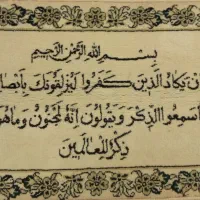 بسم الله الرحمن الرحيم
ن يكاد الذين كفروا ليزلقونك بابصا
اسمعوا الذكر ويقولون انه لمجنون وما هو
ذكر للعالمين